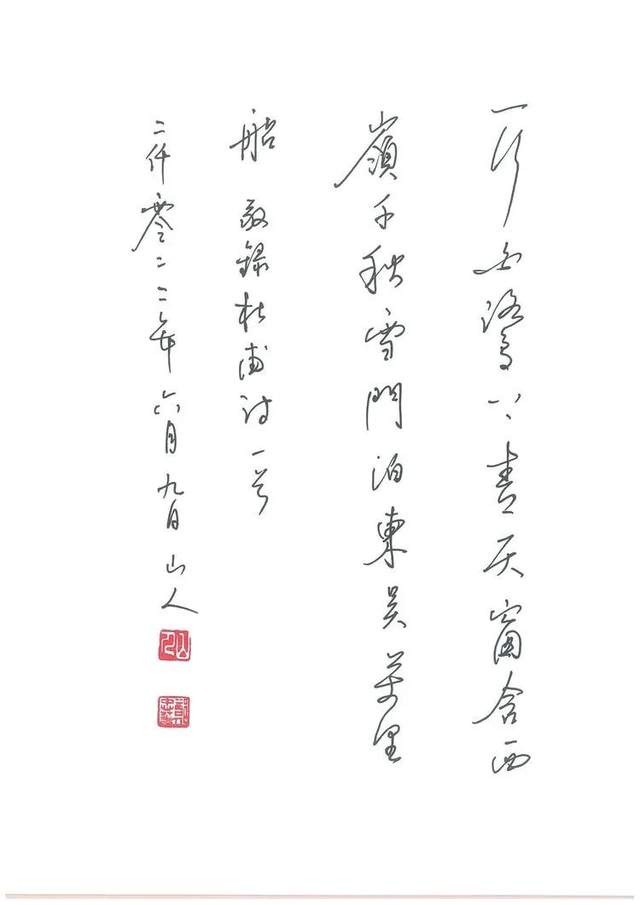 一行白鷺上青天窗含西
嶺千秋雪門泊東吳萬里
船 敬錄杜甫詩一首
二仟零二二年六月九日山人